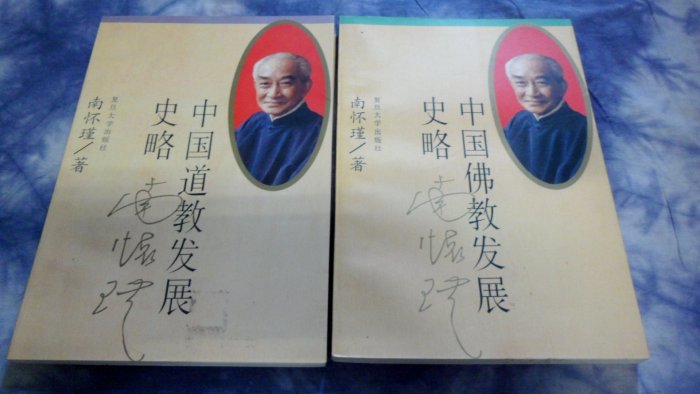 中国道教发展
史略
南怀瑾/著
复旦大学出版社
南怀瑾
中国佛教发展
史略
南怀瑾/著
复旦大学出版社
南怀瑾